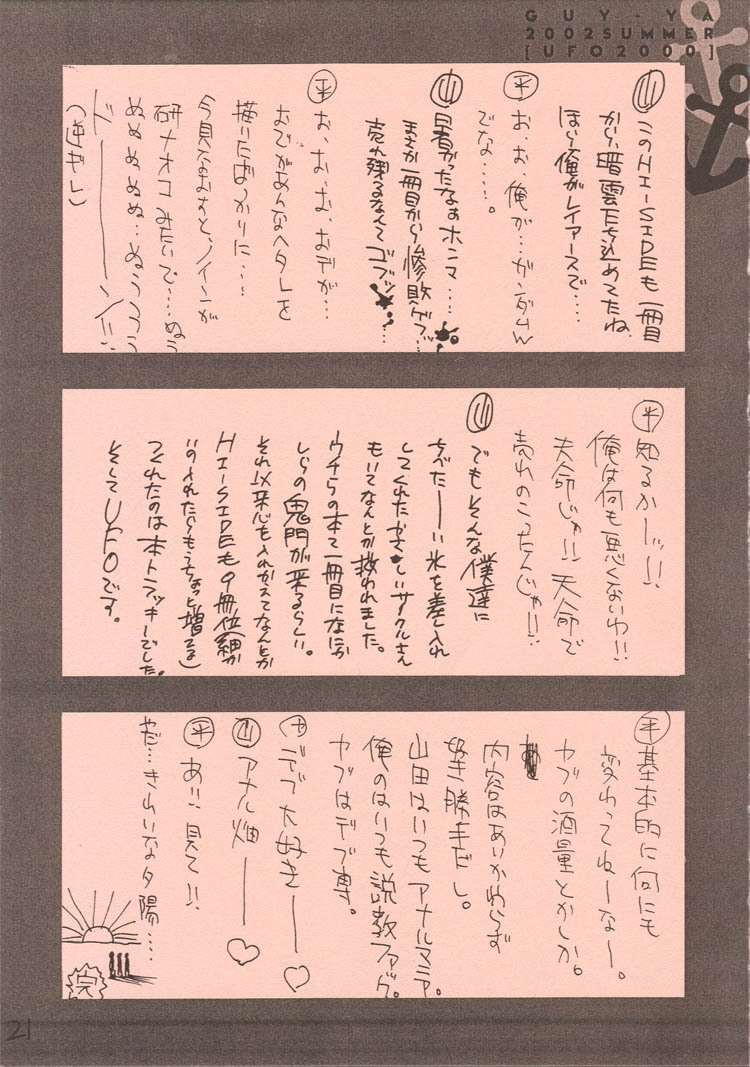 GUY-YA
2002SUMMER
[UFO2000]
山 このHI-SIDEも一冊目
から暗雲たち込めてたね
ほら俺がレイアースで……
平 お、お、俺が…ガンダムW
でな……。
山 暑かったなぁホンマ……
まさか一冊目から惨敗ゲフッ…
売れ残るなんてゴブッ…
平 お、お、お、おデが…
おでがあんなヘタレを
描いたばっかりに…!
今見なおすと、ノインが
研ナオコみたいで…ぬぅ
ぬぬぬぬぬ…ぬぅぅぅぅ
ド―――ン!!
平 知るかーッ!!
俺は何も悪くないわ!!
天命じゃ!!天命で
売れのこったんじゃ!!
山 でもそんな僕達に
つべた――い氷を差し入れ
してくれたやさしいサークルさん
もいてなんとか救われました。
ウチらの本て一冊目になにか
しらの鬼門が来るらしい。
それ以来心を入れかえてなんとか
HI-SIDEも9冊位(細か
いの入れたらもうちょっと増える)
つくれたのは本トラッキーでした。
そしてUFOです。
平 基本的に何にも
変わってねーなー。
ヤブの酒量とかしか。
内容はあいかわらず
好き勝手だし。
山田はいつもアナルマニア。
俺のはいつも説教ファック。
ヤブはデブ専。
ヤ デブ大好き――♡
山 アナル畑――♡
平 あ!!見て!!
やだ…きれいな夕陽……
完
21